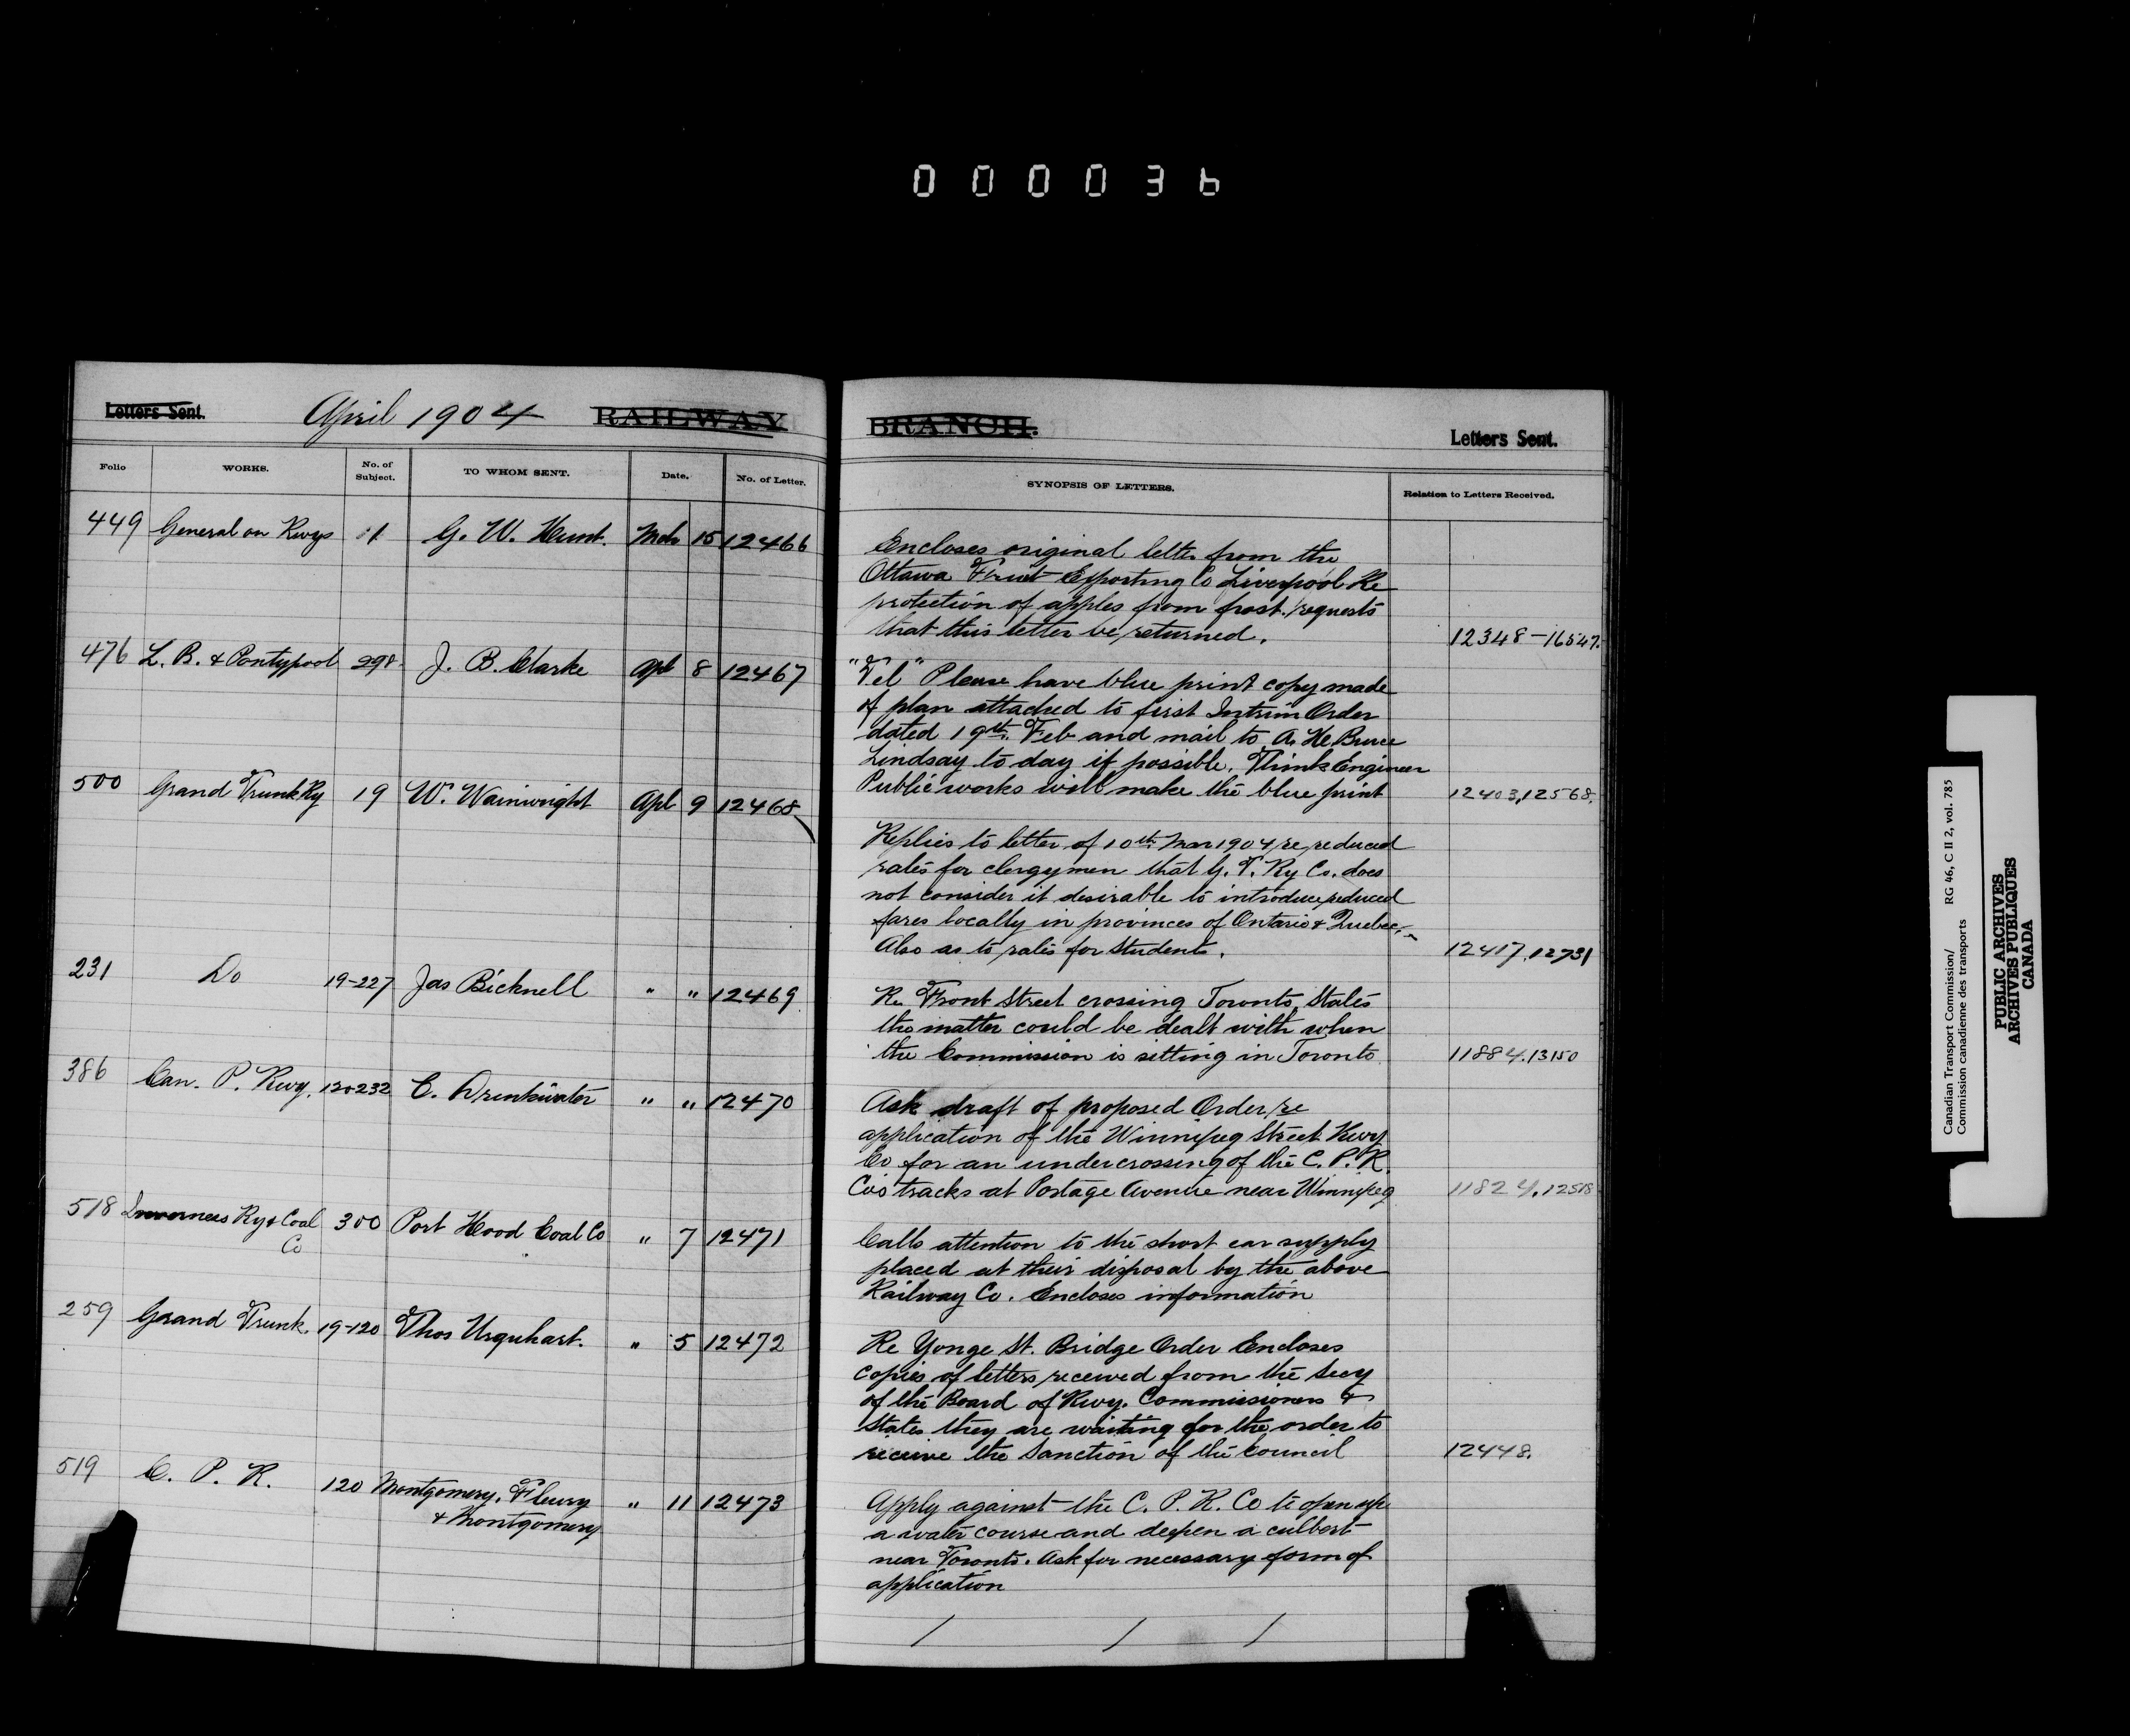 000036
Letters Sent. April 1904 RAILWAY BRANCH. Letters Sent.
Folio WORKS. No. of Subject. TO WHOM SENT. Date. No. of Letter. SYNOPSIS OF LETTERS. Relation to Letters Received.
449 General on Rwys 1 G. W. Hunt. Mch 15 12466
Encloses original lettr from the
Ottawa Fruit Exporting Co Liverpool Re
protection of apples from frost. requests
that this letter be returned. 12348-16547.
476 L. B. & Pontypool 298. J. B. Clarke Apl 8 12467
"Tel" Please have blue print copy made
of plan attached to first Intrim Order
dated 19th. Feb and mail to A. He Bruce
Lindsay to day if possible. Think Engineer
Public works will make the blue print 12403,12568.
500 Grand Trunk Ry 19 W. Wainwright Apl 9 12468
Replies to letter of 10th Mar 1904 re reduced
rates for clergymen that G. T. Ry Co. does
not consider it desirable to introduce reduced
fares locally in provinces of Ontario & Quebec.
Also as to rates for students. 12417,12731
231 Do 19-227 Jas Bicknell " " 12469
Re Front Street crossing Toronto, States
the matter could be dealt with when
the Commission is sitting in Toronto 11884.13150
386 Can. P. Rwy. 120232 C. Drinkwater " " 12470
Ask draft of proposed Order re
application of the Winnipeg Street Rwy
Co for an undercrossing of the C. P. R.
Co's tracks at Portage Avenue near Winnipeg 11824.12518
518 Inverness Ry & Coal Co 300 Port Hood Coal Co " 7 12471
Calls attention to the short car supply
placed at their disposal by the above
Railway Co. Encloses information
259 Grand Trunk. 19-120 Thos Urquhart. " 5 12472
Re Yonge St. Bridge Order Encloses
copies of letters received from the Secy
of the Board of Rwy. Commissioners &
States they are waiting for the order to
receive the sanction of the Council 12448.
519 C. P. R. 120 Montgomery, Fleury & Montgomery " 11 12473
Apply against the C. P. R. Co to open up
a water course and deepen a culbert
near Toronto. Ask for necessary form of
application
Canadian Transport Commission/ RG 46, C II 2, vol. 785
Commission canadienne des transports
PUBLIC ARCHIVES
ARCHIVES PUBLIQUES
CANADA